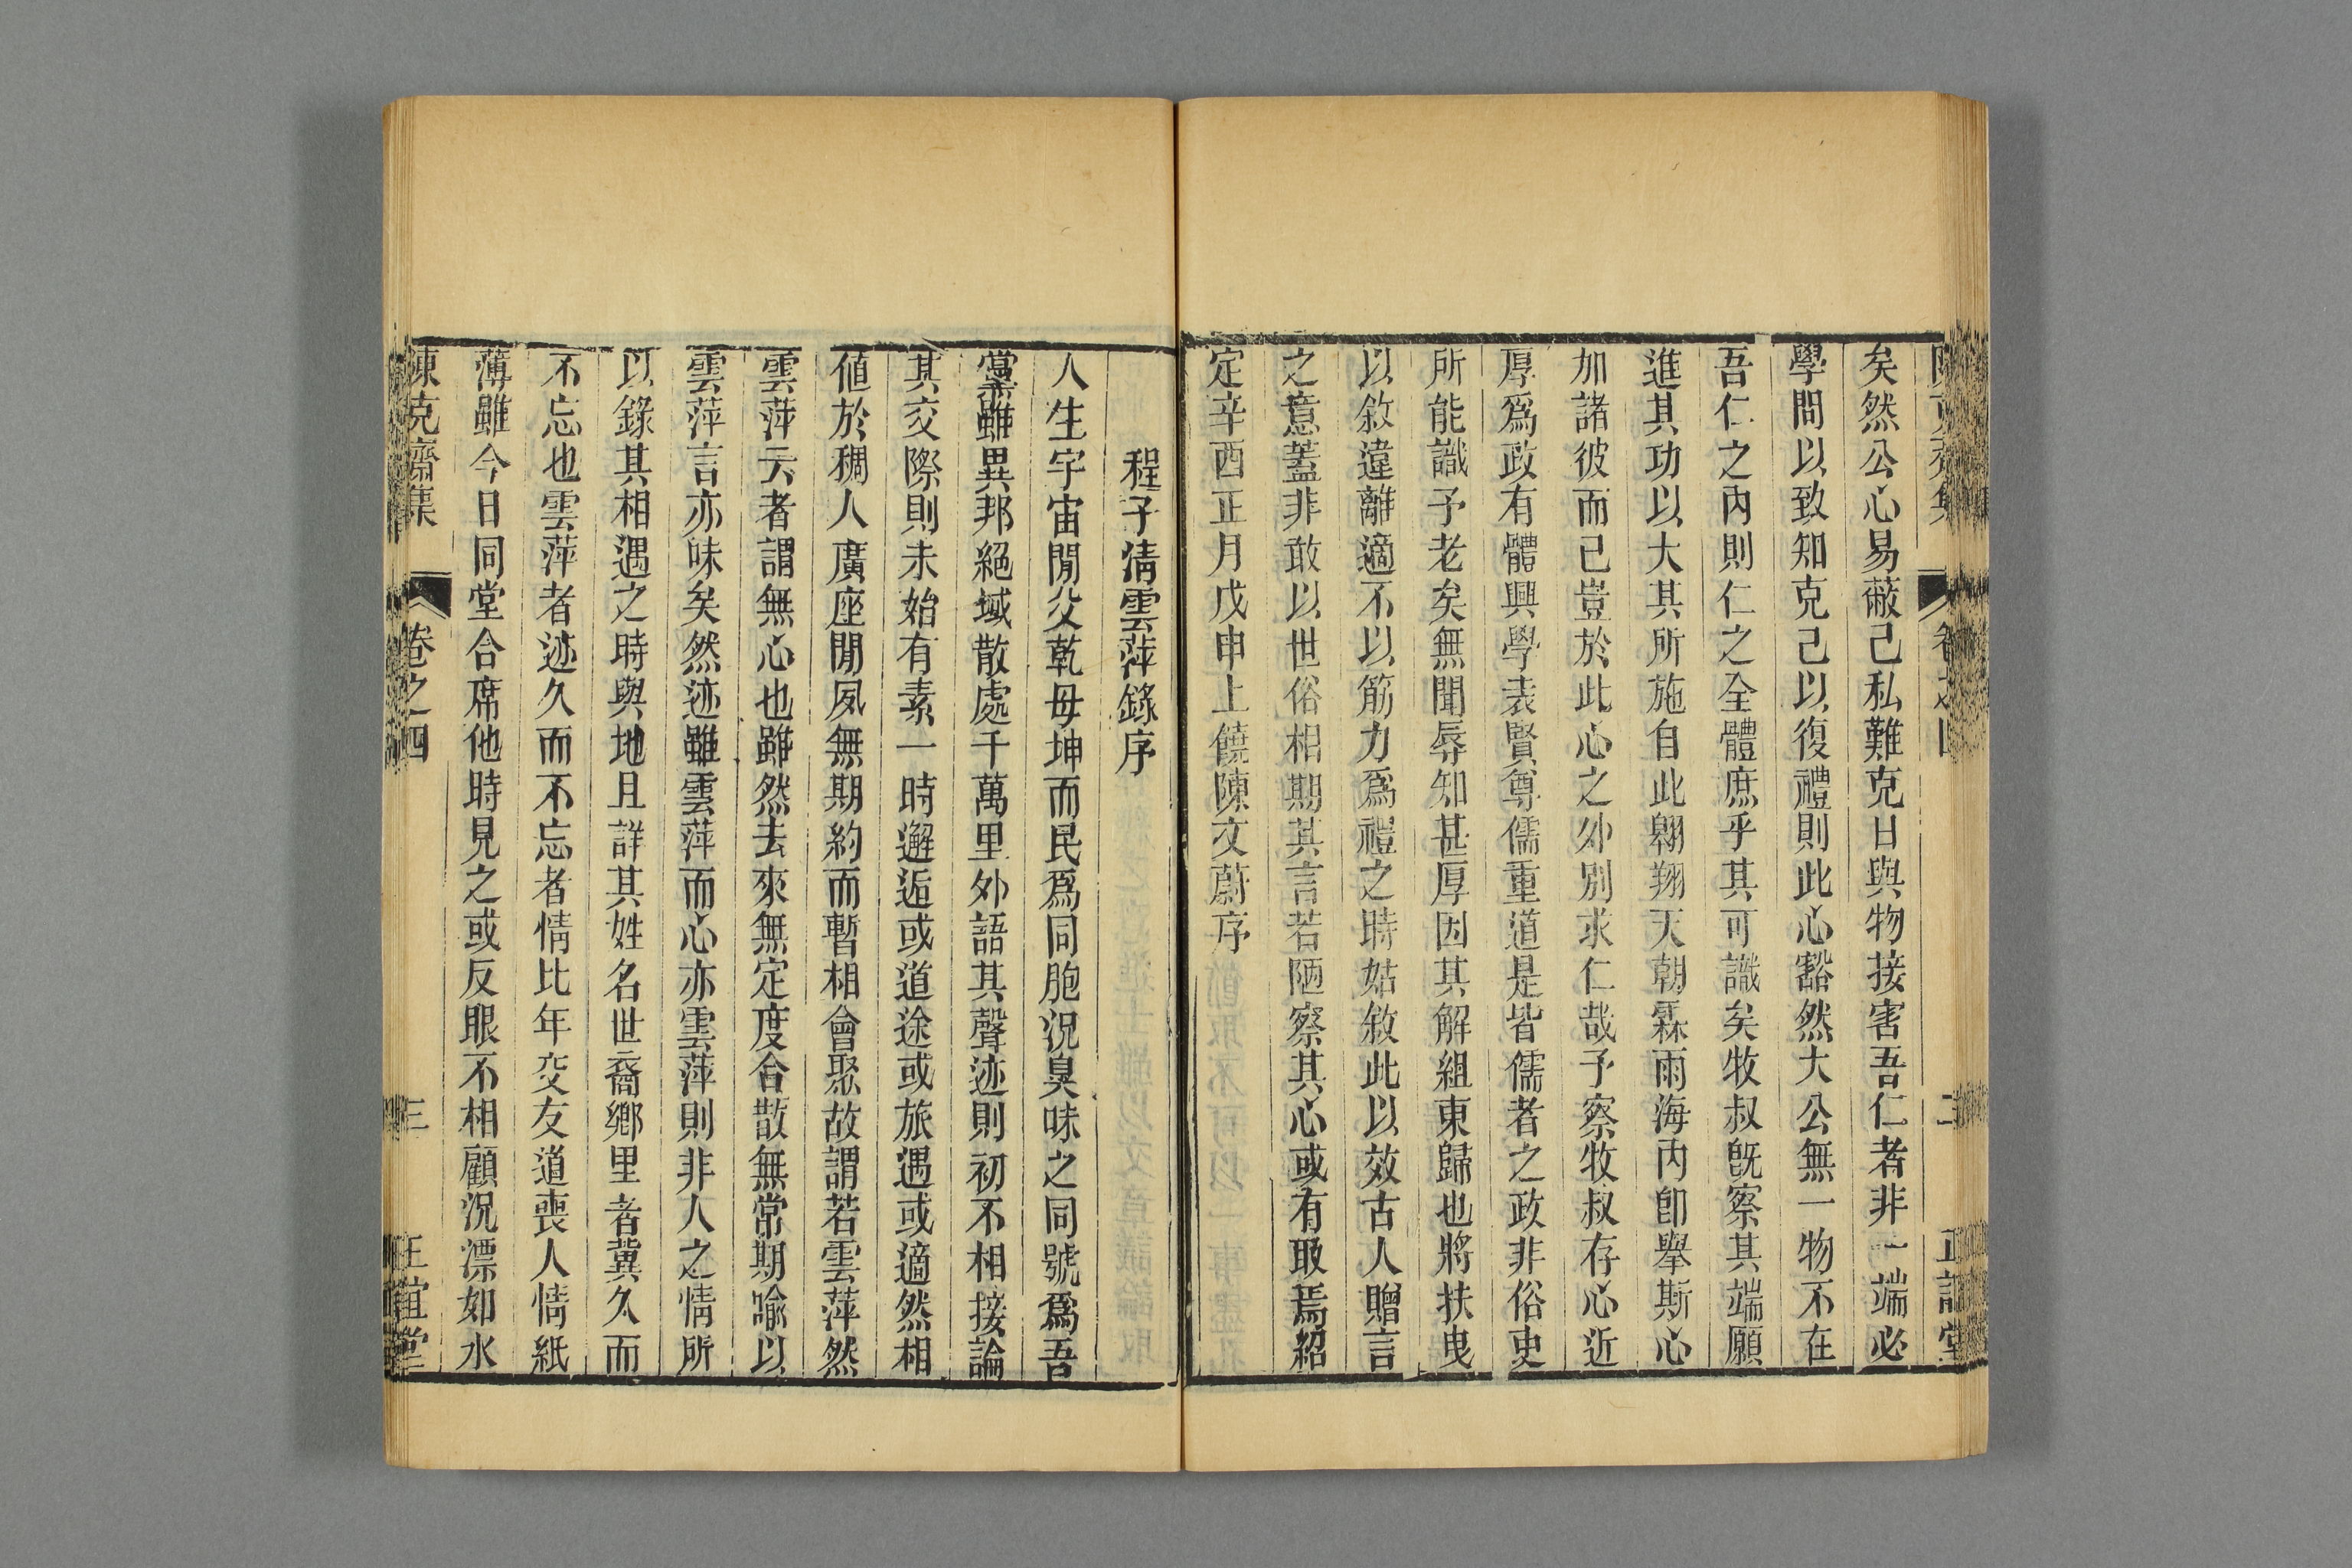 矣然公心易蔽己私難克日與物接害吾仁者非一端必
學問以致知克己以復禮則此心豁然大公無一物不在
吾仁之內則仁之全體庶乎其可識矣牧叔旣察其端願
進其功以大其所施自此翱翔天朝霖雨海內卽舉斯心
加諸彼而已豈於此心之外別求仁哉予察牧叔存心近
厚爲政有體興學表賢尊儒重道是皆儒者之政非俗吏
所能識予老矣無聞辱知甚厚因其解組東歸也將扶曳
以敘違離適不以筋力爲禮之時姑敘此以效古人贈言
之意蓋非敢以世俗相期其言若陋察其心或有取焉紹
定辛酉正月戊申上饒陳文蔚序
程子淸雲萍錄序
人生宇宙閒父乾母坤而民爲同胞況臭味之同號爲吾
黨雖異邦絕域散處千萬里外語其聲迹則初不相接論
其交際則未始有素一時邂逅或道途或旅遇或適然相
値於稠人廣座閒夙無期約而暫相會聚故謂若雲萍然
雲萍云者謂無心也雖然去來無定度合散無常期喻以
雲萍言亦味矣然迹雖雲萍而心亦雲萍則非人之情所
以錄其相遇之時與地且詳其姓名世裔鄕里者冀久而
不忘也雲萍者迹久而不忘者情比年交友道喪人情紙
薄雖今日同堂合席他時見之或反眼不相顧況漂如水
陳克齋集 卷之四 三 正誼堂